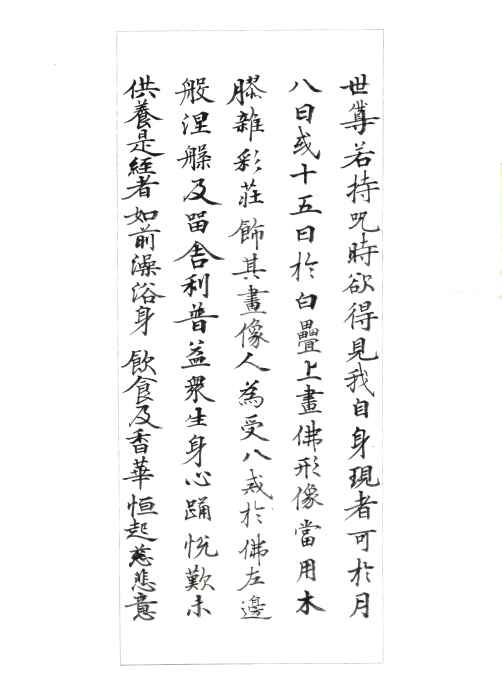 世尊若持呪時欲得見我自身現者可於月
八日或十五日於白疊上畫佛形像當用木
膠雜彩莊飾其畫像人為受八戒於佛左邊
般涅槃及留舍利普益眾生身心踊悅歎未
供養是經者如前澡浴身 飲食及香華恒起慈悲意